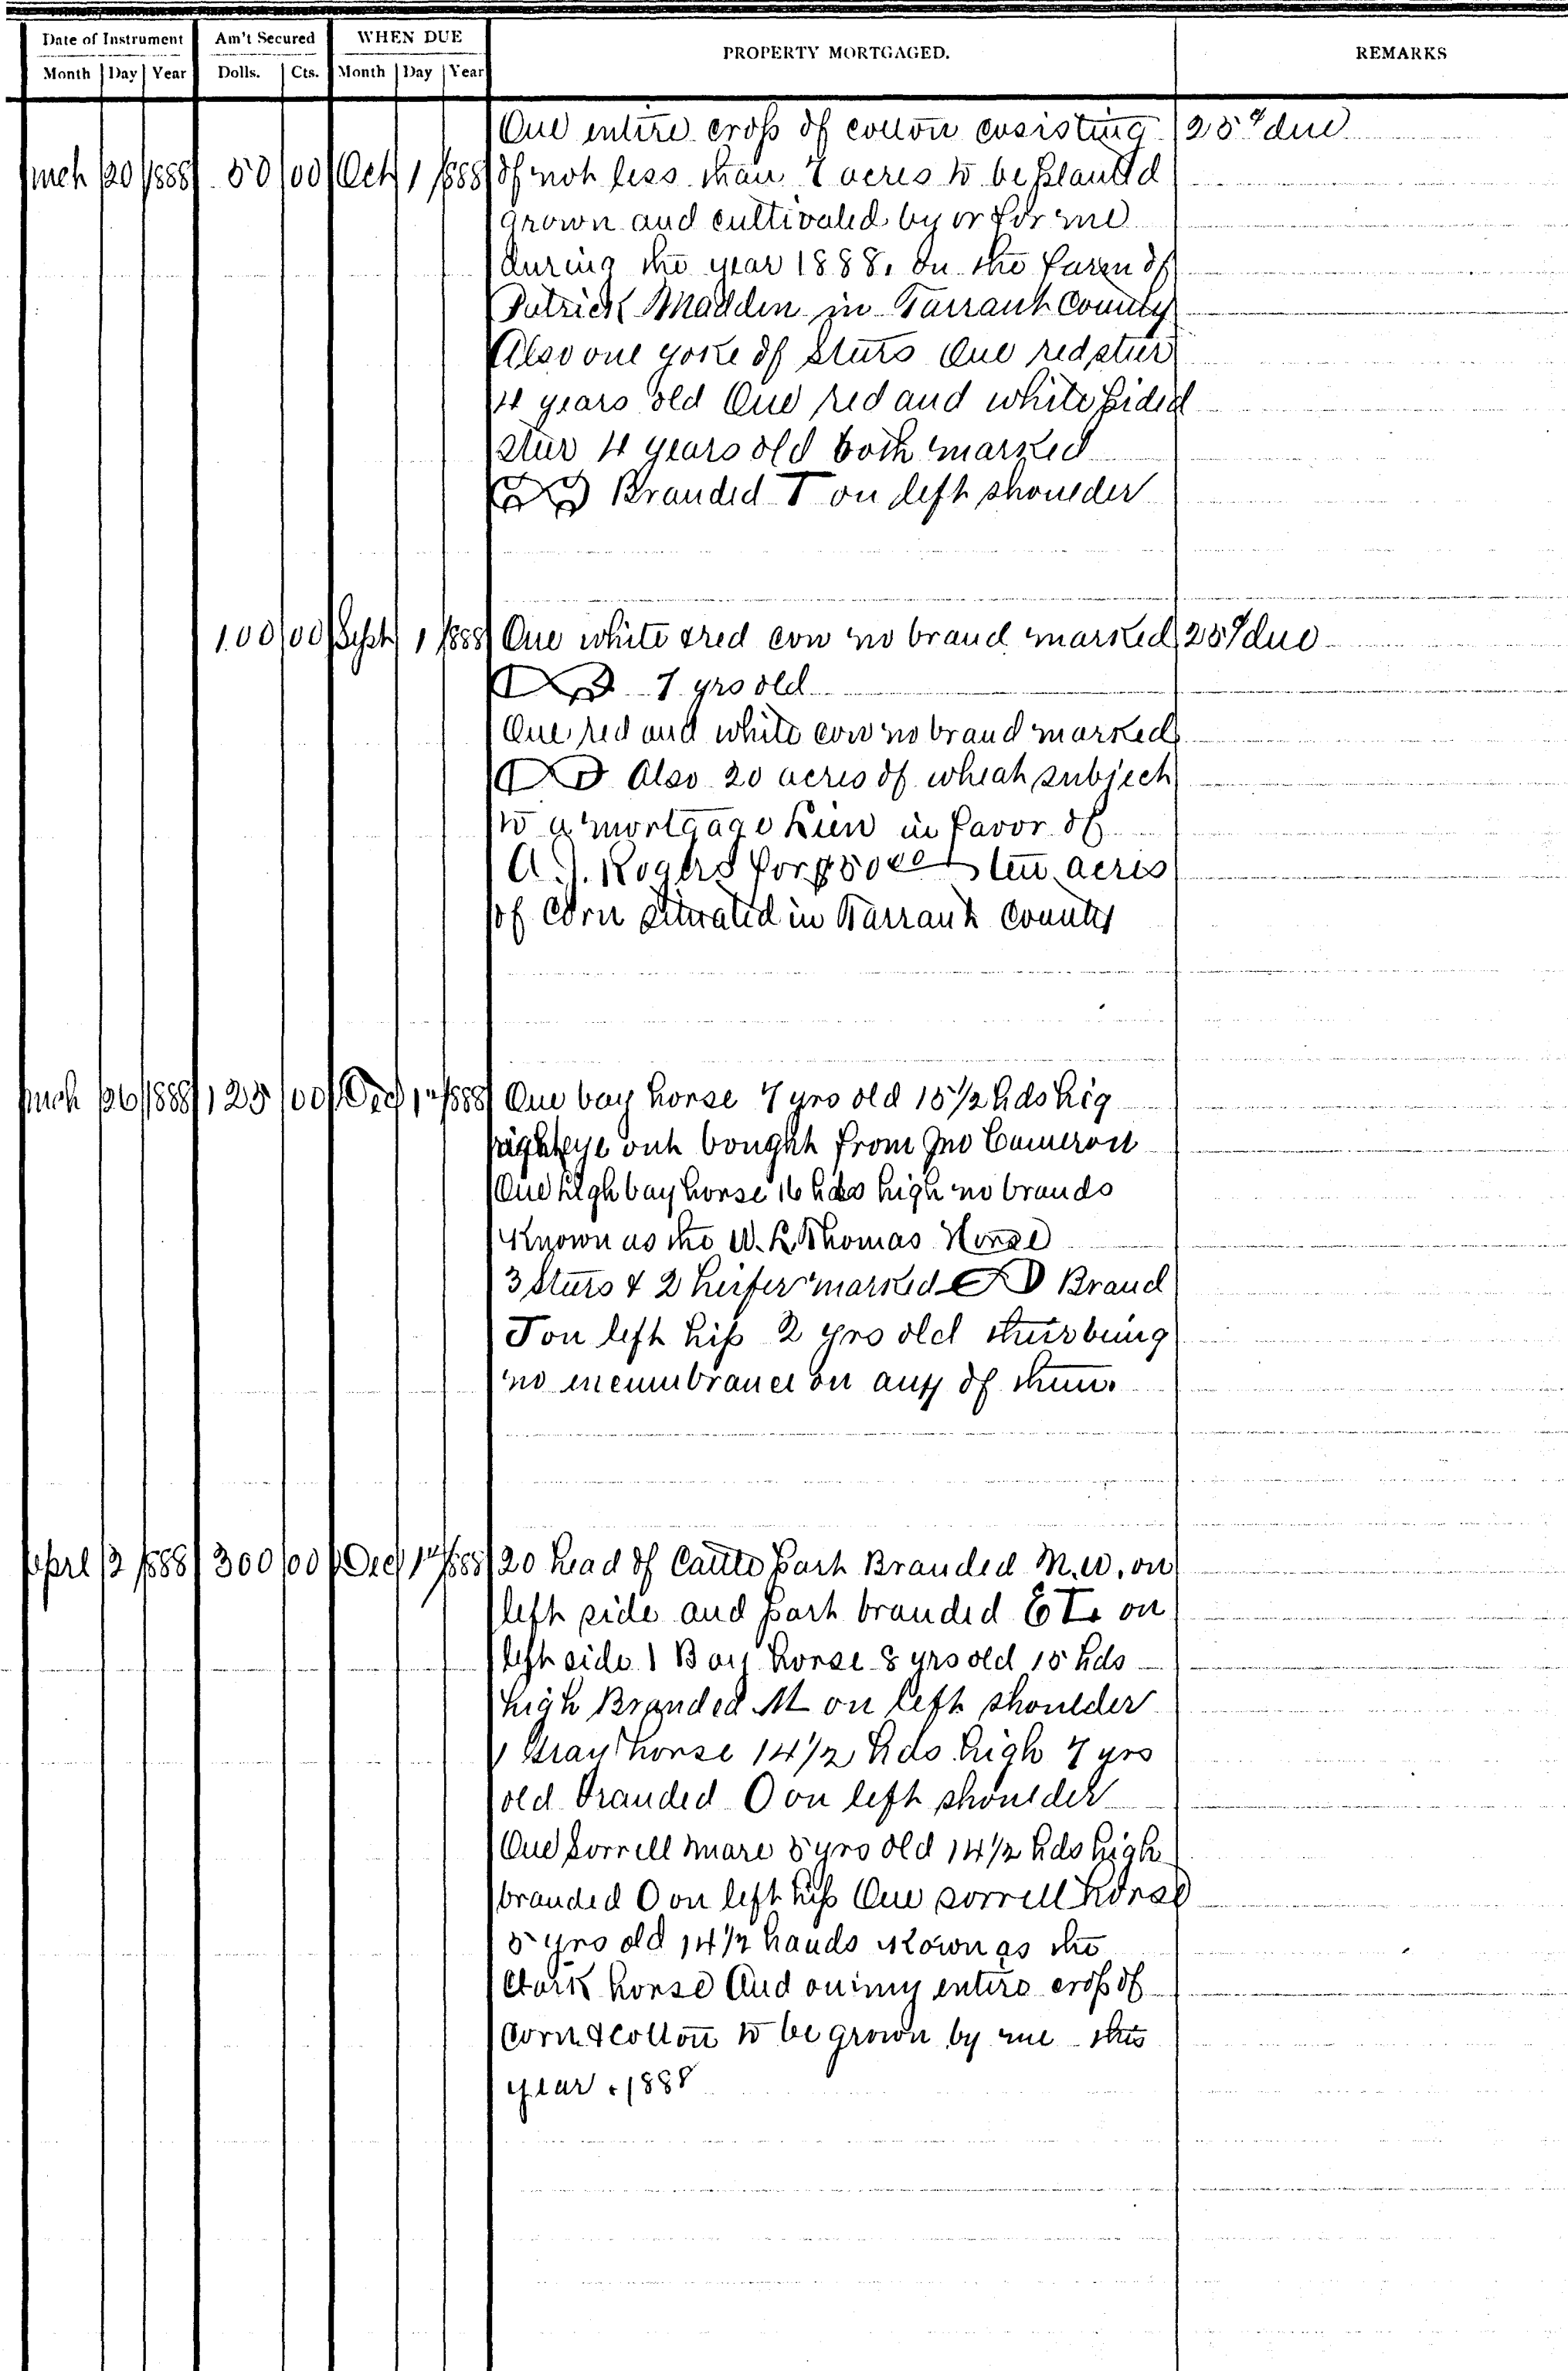 Date of Instrument Am't Secured WHEN DUE PROPERTY MORTGAGED. REMARKS
Month Day Year Dolls. Cts. Month Day Year
One entire crop of cotton consisting 25¢ due
Mch 20 1888 50 00 Oct 1 1888 of not less than 7 acres to be planted
grown and cultivated by or for me
during the year 1888. On the farm of
Patrick Madden in Tarrant County
Also one yoke of Steers One red steer
4 years old One red and white sided
steer 4 years old both marked
Branded T on left shoulder
100 00 Sept 1 1888 One white & red cow no brand marked 25¢ due
7 yrs old
One red and white cow no brand marked
Also 20 acres of wheat subject
to a mortgage lien in favor of
A.J. Rogers for ten acres
of Corn situated in Tarrant County
Mch 26 1888 125 00 Oct 1st 1888 One bay horse 7 yrs old 15 1/2 hds hig
right eye out bought from Jno Cameron
One high bay horse 16 hds high no brands
Known as the W. R. Thomas Horse
3 Steers & 2 heifer marked Brand
T on left hip 2 yrs old their being
no incumbrance on any of them.
Aprl 2 1888 300 00 Dec 1st 1888 20 head of Cattle part Branded M.W. on
left side and part branded on
left side 1 Bay horse 8 yrs old 15 hds
high Branded M on left shoulder
1 Gray horse 14 1/2 hds high 7 yrs
old branded O on left shoulder
One Sorrell mare 5 yrs old 14 1/2 hds high
branded O on left hip One sorrell horse
5 yrs old 14 1/2 hands known as the
Clark horse And on my entire crop of
Corn & Cotton to be grown by me this
year . 1888